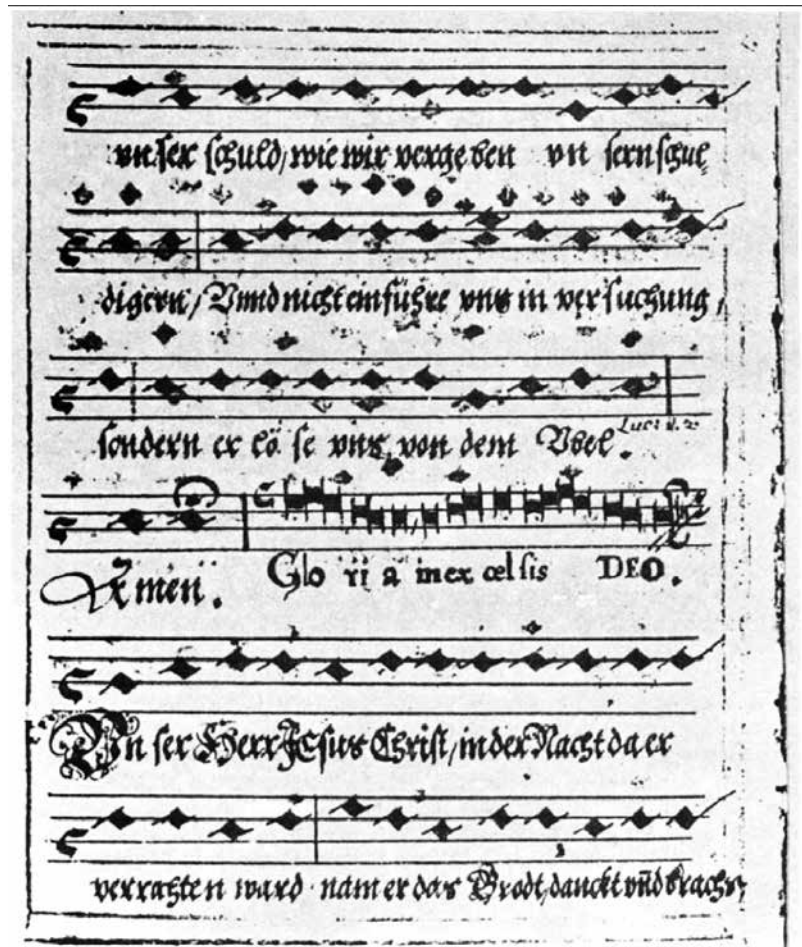 vn ser schuld, wie wir verge ben vn sern schul-
digern, Vnnd nicht einführe vns in versuchung,
sondern er lö se vns von dem Vbel.
Amen. Glo ri a in ex cel sis DEO.
Vn ser Herr JEsus Christ, in der Nacht da er
verrahten ward nam er das Brodt, danckt vnd brachs,